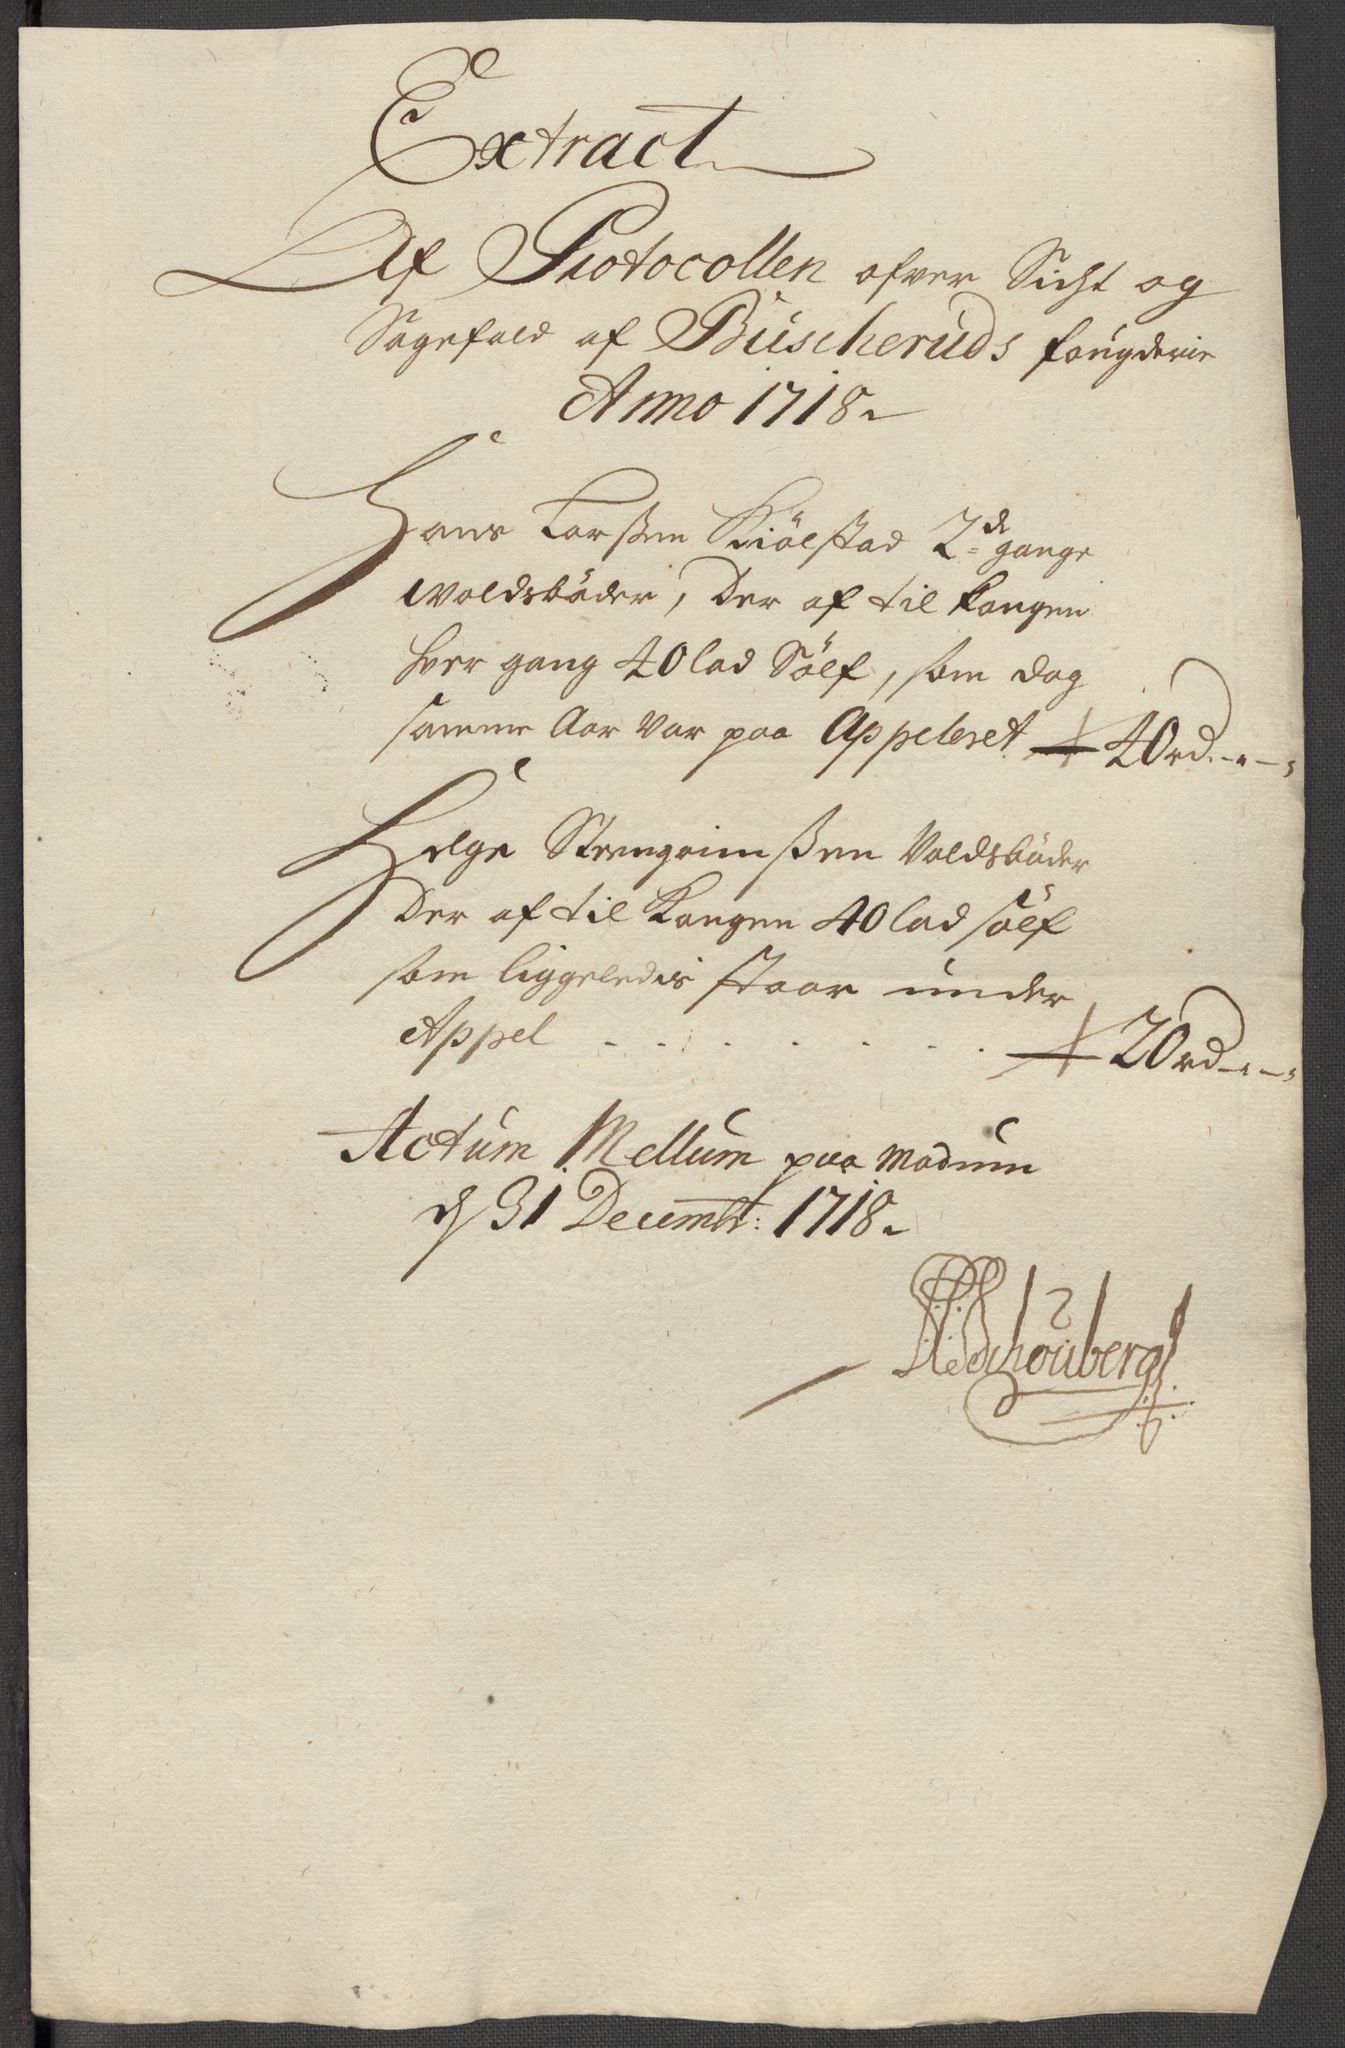 Extract
Af Protocollen ofver Sicht og
Sagefald af Büscheruds fougderie
Anno 1718
Hans Larssen Kiölstad 2de gange
woldsböder, Der af til Kongen
hver gang 40 lod Sölf, som dog
samme Aar var paa Appeleret 40 rd
Helge Steengrimssen Voldsböder
Der af til Kongen 40 lod sölf
som liggeledis staar under
Appel . . . . . . . . 20 rd
Actum Mellum paa Modum
d 31 Decembr: 1718
Schouberg